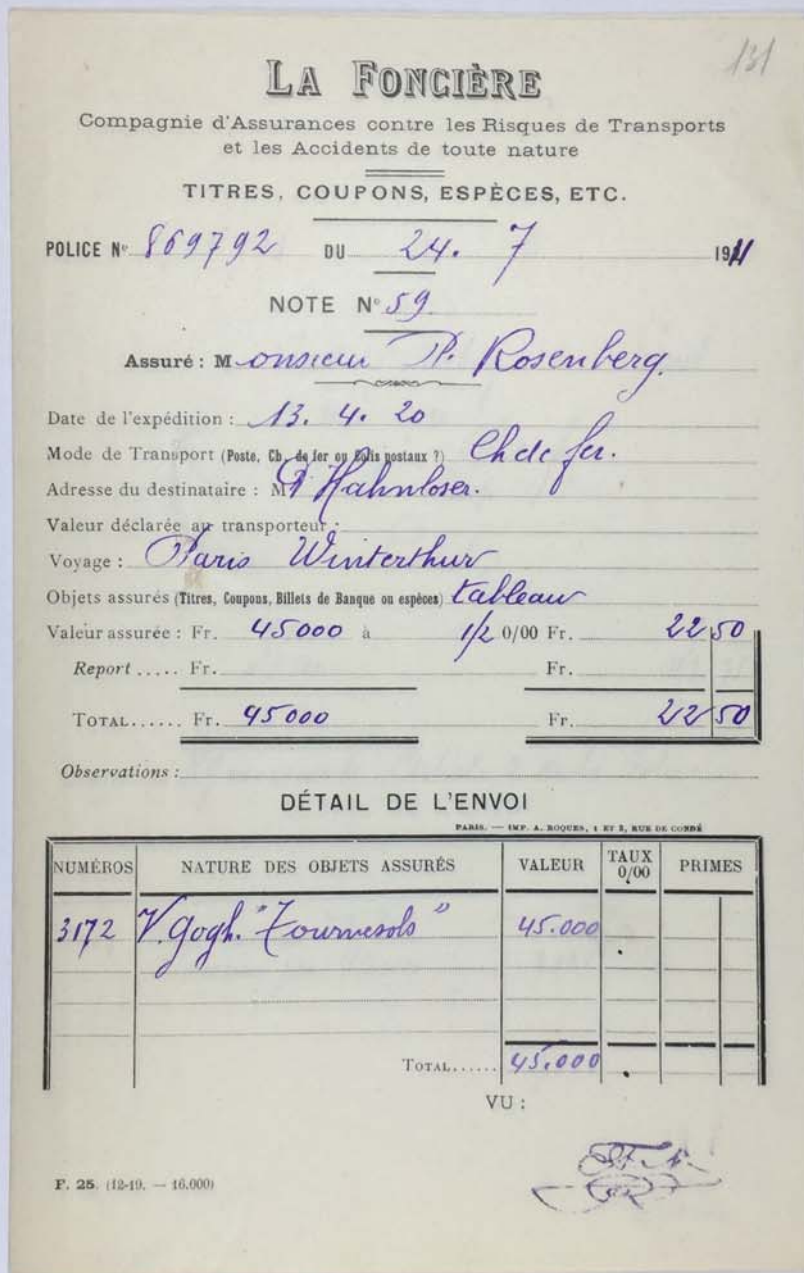 131
LA FONCIÈRE
Compagnie d'Assurances contre les Risques de Transports
et les Accidents de toute nature
TITRES, COUPONS, ESPÈCES, ETC.
POLICE N° 869792 DU 24. 7 1911
NOTE N° 59
Assuré : Monsieur P. Rosenberg.
Date de l'expédition : 13. 4. 20
Mode de Transport (Poste, Ch. de fer ou Colis postaux ?) Ch de fer.
Adresse du destinataire : M Hahnloser.
Valeur déclarée au transporteur :
Voyage : Paris Winterthur
Objets assurés (Titres, Coupons, Billets de Banque ou espèces) tableau
Valeur assurée : Fr. 45000 à 1/2 0/00 Fr. 22 50
Report ..... Fr. Fr.
TOTAL...... Fr. 45000 Fr. 22 50
Observations :
DÉTAIL DE L'ENVOI
PARIS. — IMP. A. ROQUES, 1 ET 3, RUE DE CONDÉ
NUMÉROS NATURE DES OBJETS ASSURÉS VALEUR TAUX 0/00 PRIMES
3172 V. Gogh. "Tournesols" 45.000
TOTAL...... 45.000
VU :
F. 25. (12-19. — 16.000)